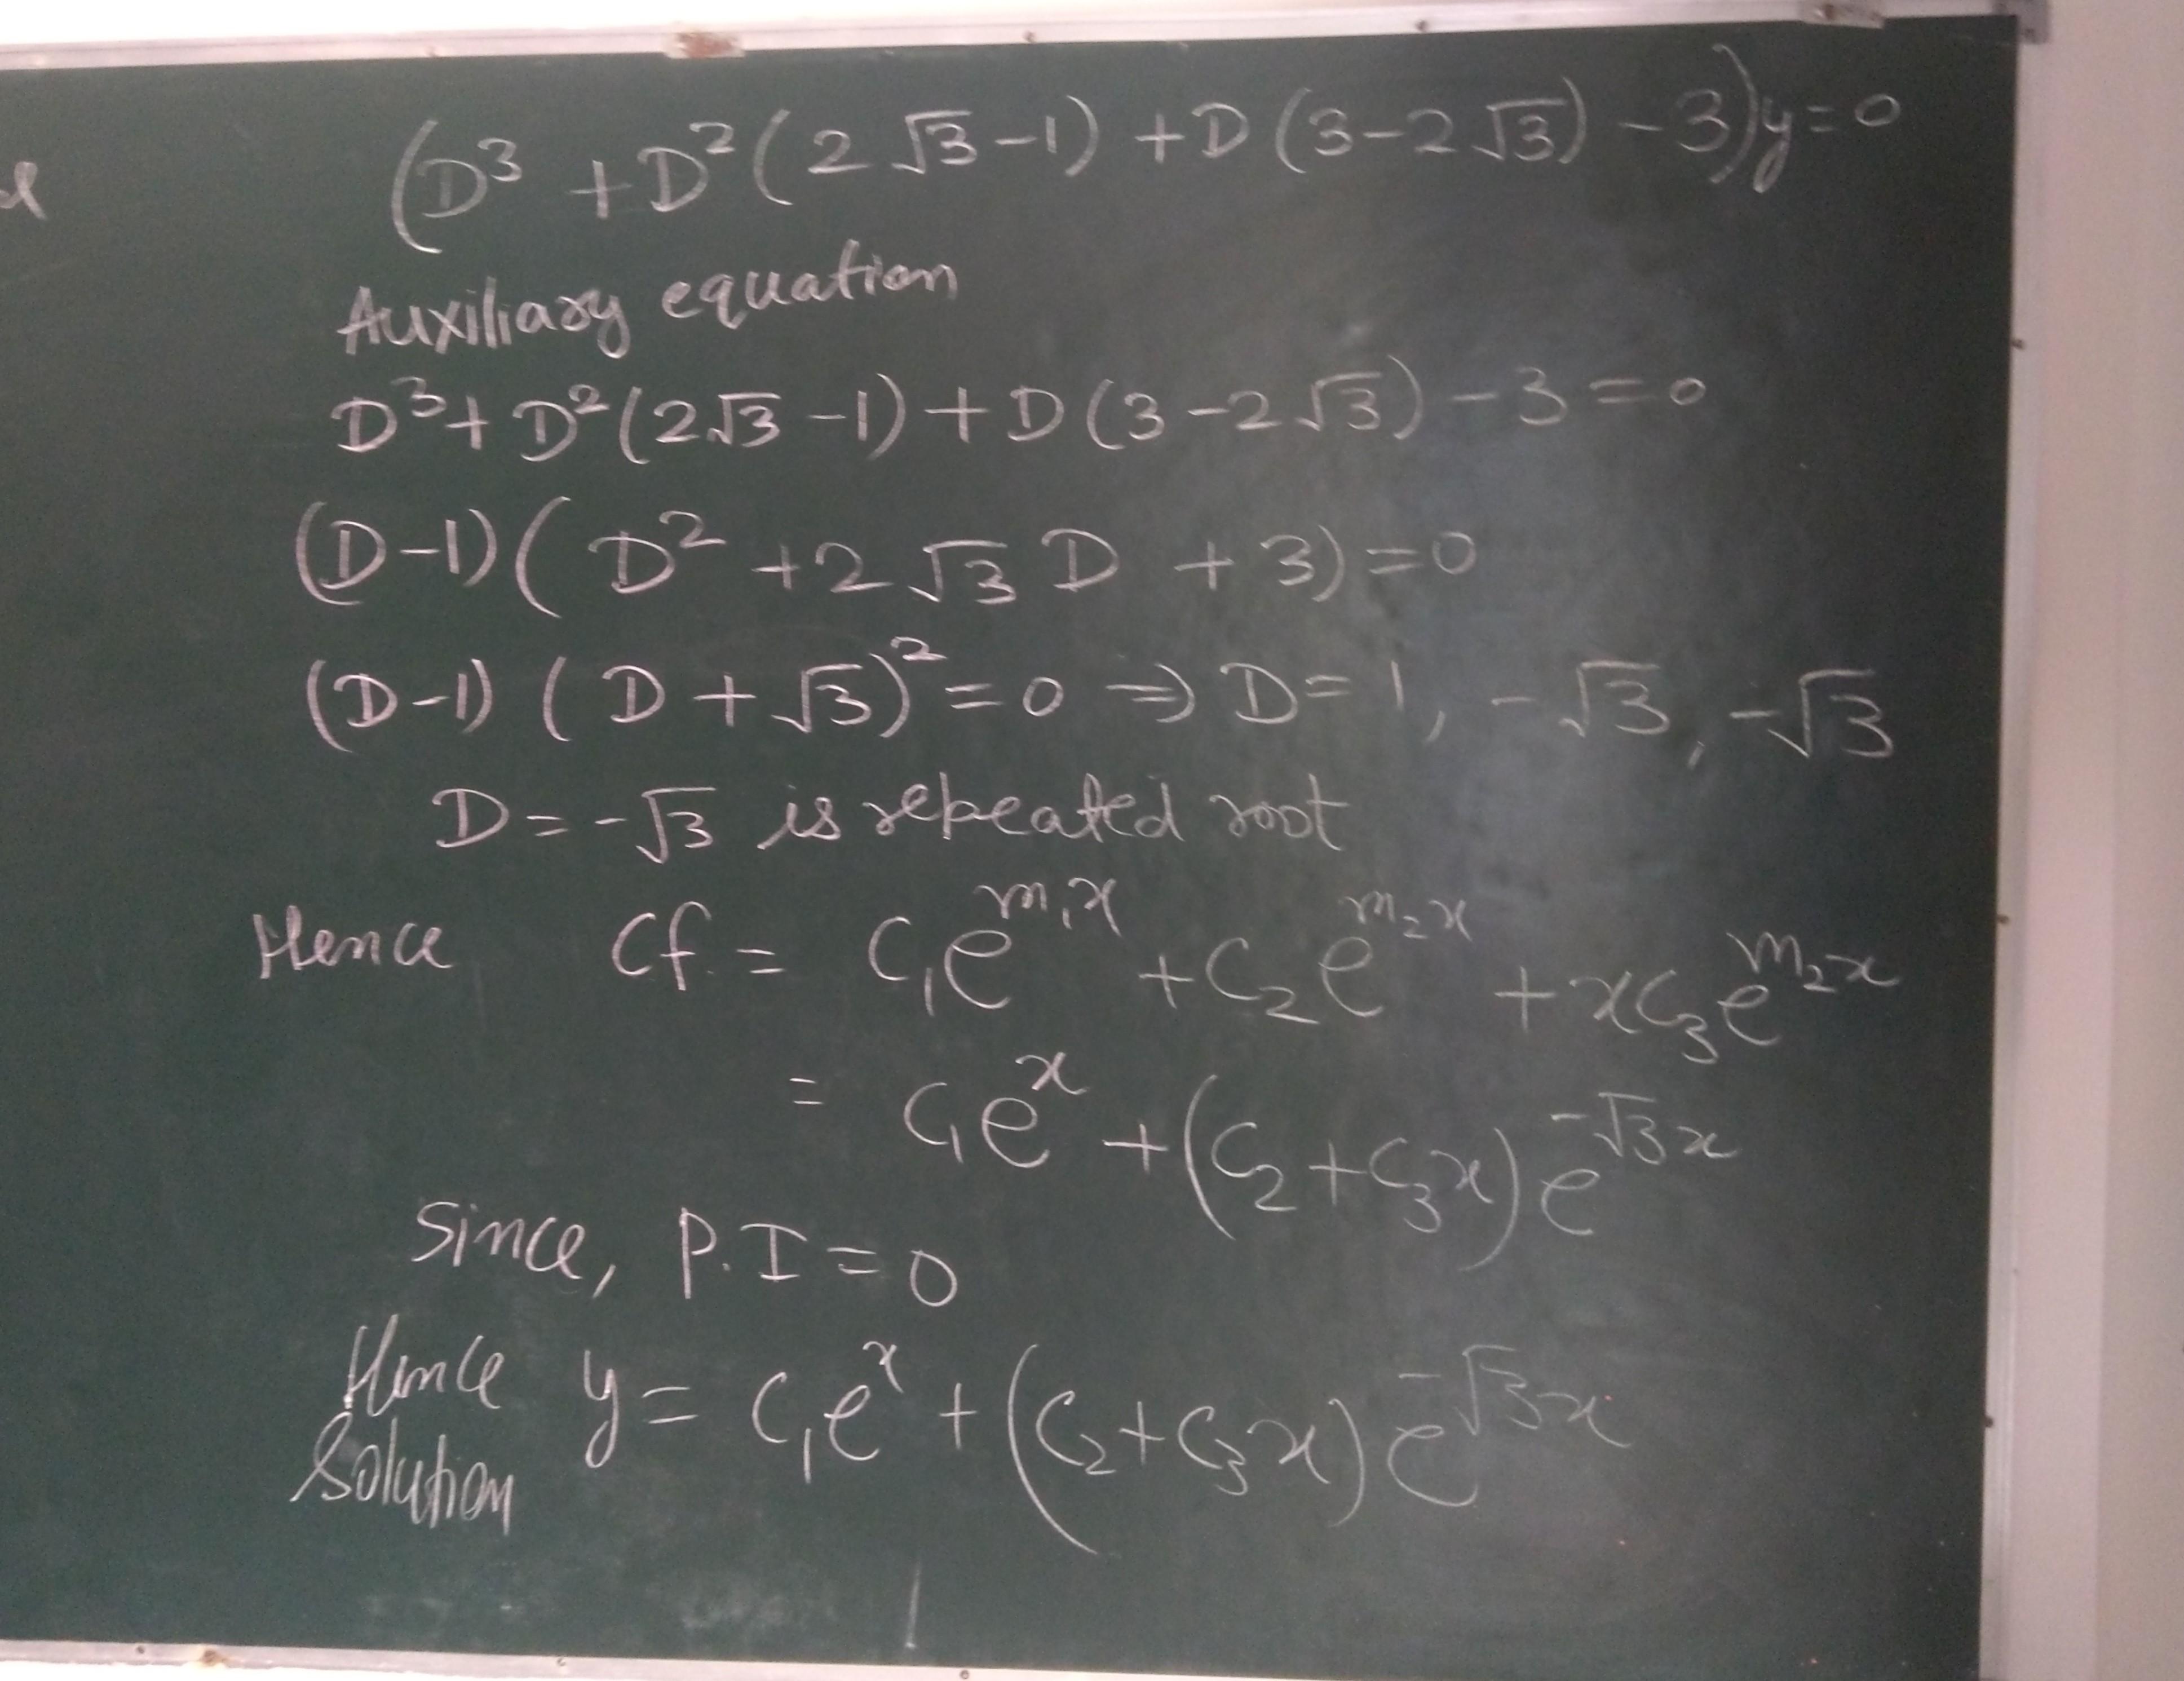 (D³ + D²(2√3-1) + D(3-2√3) - 3)y = 0
Auxiliary equation
D³ + D²(2√3-1) + D(3-2√3) - 3 = 0
(D-1)(D² + 2√3 D + 3) = 0
(D-1)(D + √3)² = 0 ⇒ D = 1, -√3, -√3
D = -√3 is repeated root
Hence Cf. = C₁e^{m₁x} + C₂e^{m₂x} + xC₃e^{m₂x}
= C₁e^{x} + (C₂ + C₃x)e^{-√3x}
Since, P.I = 0
Hence Solution y = C₁e^{x} + (C₂ + C₃x)e^{-√3x}